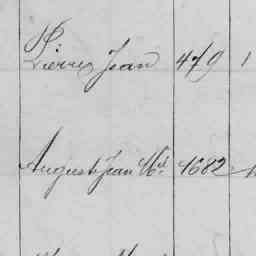 Pierre Jean 479 1
August Jean Bte 4682